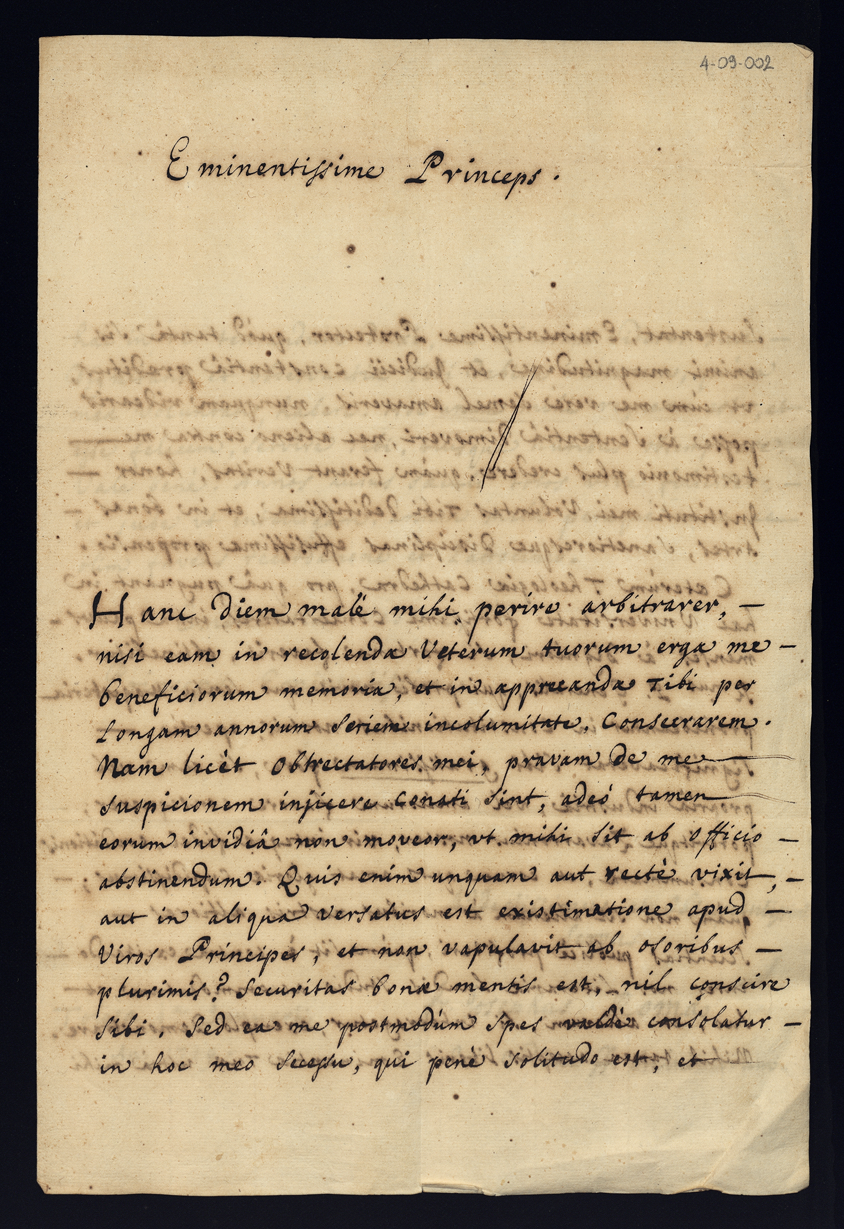 4-09-002
Eminentissime Princeps.
Hanc diem malè mihi perire arbitrarer, –
nisi eam in recolenda Veterum tuorum erga me –
beneficiorum memoria, et in apprecanda Tibi per
longam annorum seriem incolumitate, consecrarem.
Nam licèt obtrectatores mei, pravam de me
suspicionem injicere conati sint, adeò tamen
eorum invidiâ non moveor, vt mihi sit ab officio –
abstinendum. Quis enim unquam aut rectè vixit, –
aut in aliqua versatus est existimatione apud –
Viros Principes, et non vapulavit ab osoribus –
plurimis? Securitas bonæ mentis est, nil conscire
sibi. Sed ea me postmodùm spes valdè consolatur –
in hoc meo secessu, qui penè solitudo est, et